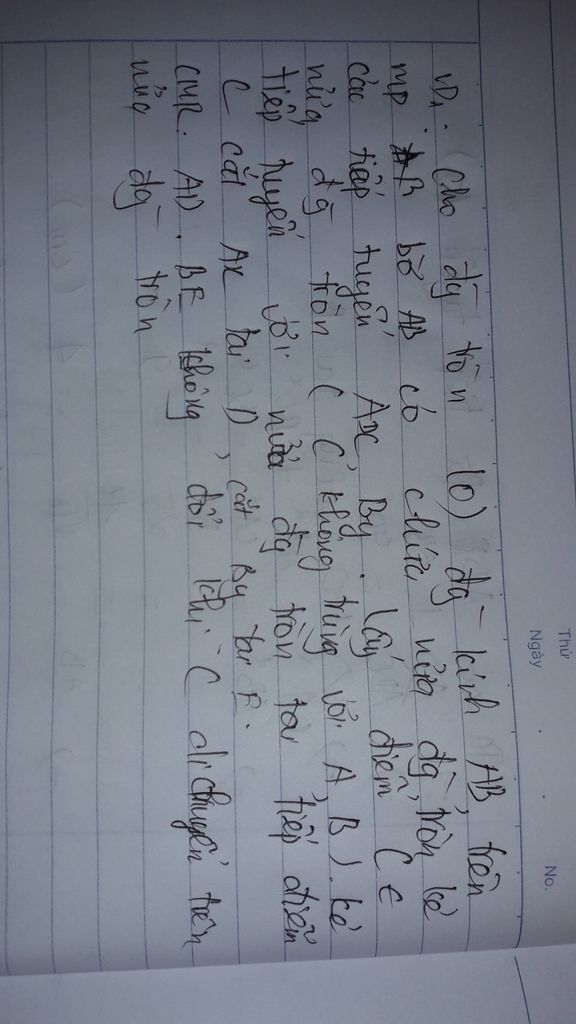 Thứ
Ngày
No.
VD1. Cho đg tròn (O) đg kính AB, trên
mp bờ AB có chứa nửa đg tròn kẻ
các tiếp tuyến Ax, By. Lấy điểm C ∈
nửa đg tròn ( C không trùng với A, B). kẻ
tiếp tuyến với nửa đg tròn tại tiếp điểm
C cắt Ax tại D, cắt By tại E.
CMR. AD. BE không đổi khi C di chuyển trên
nửa đg tròn